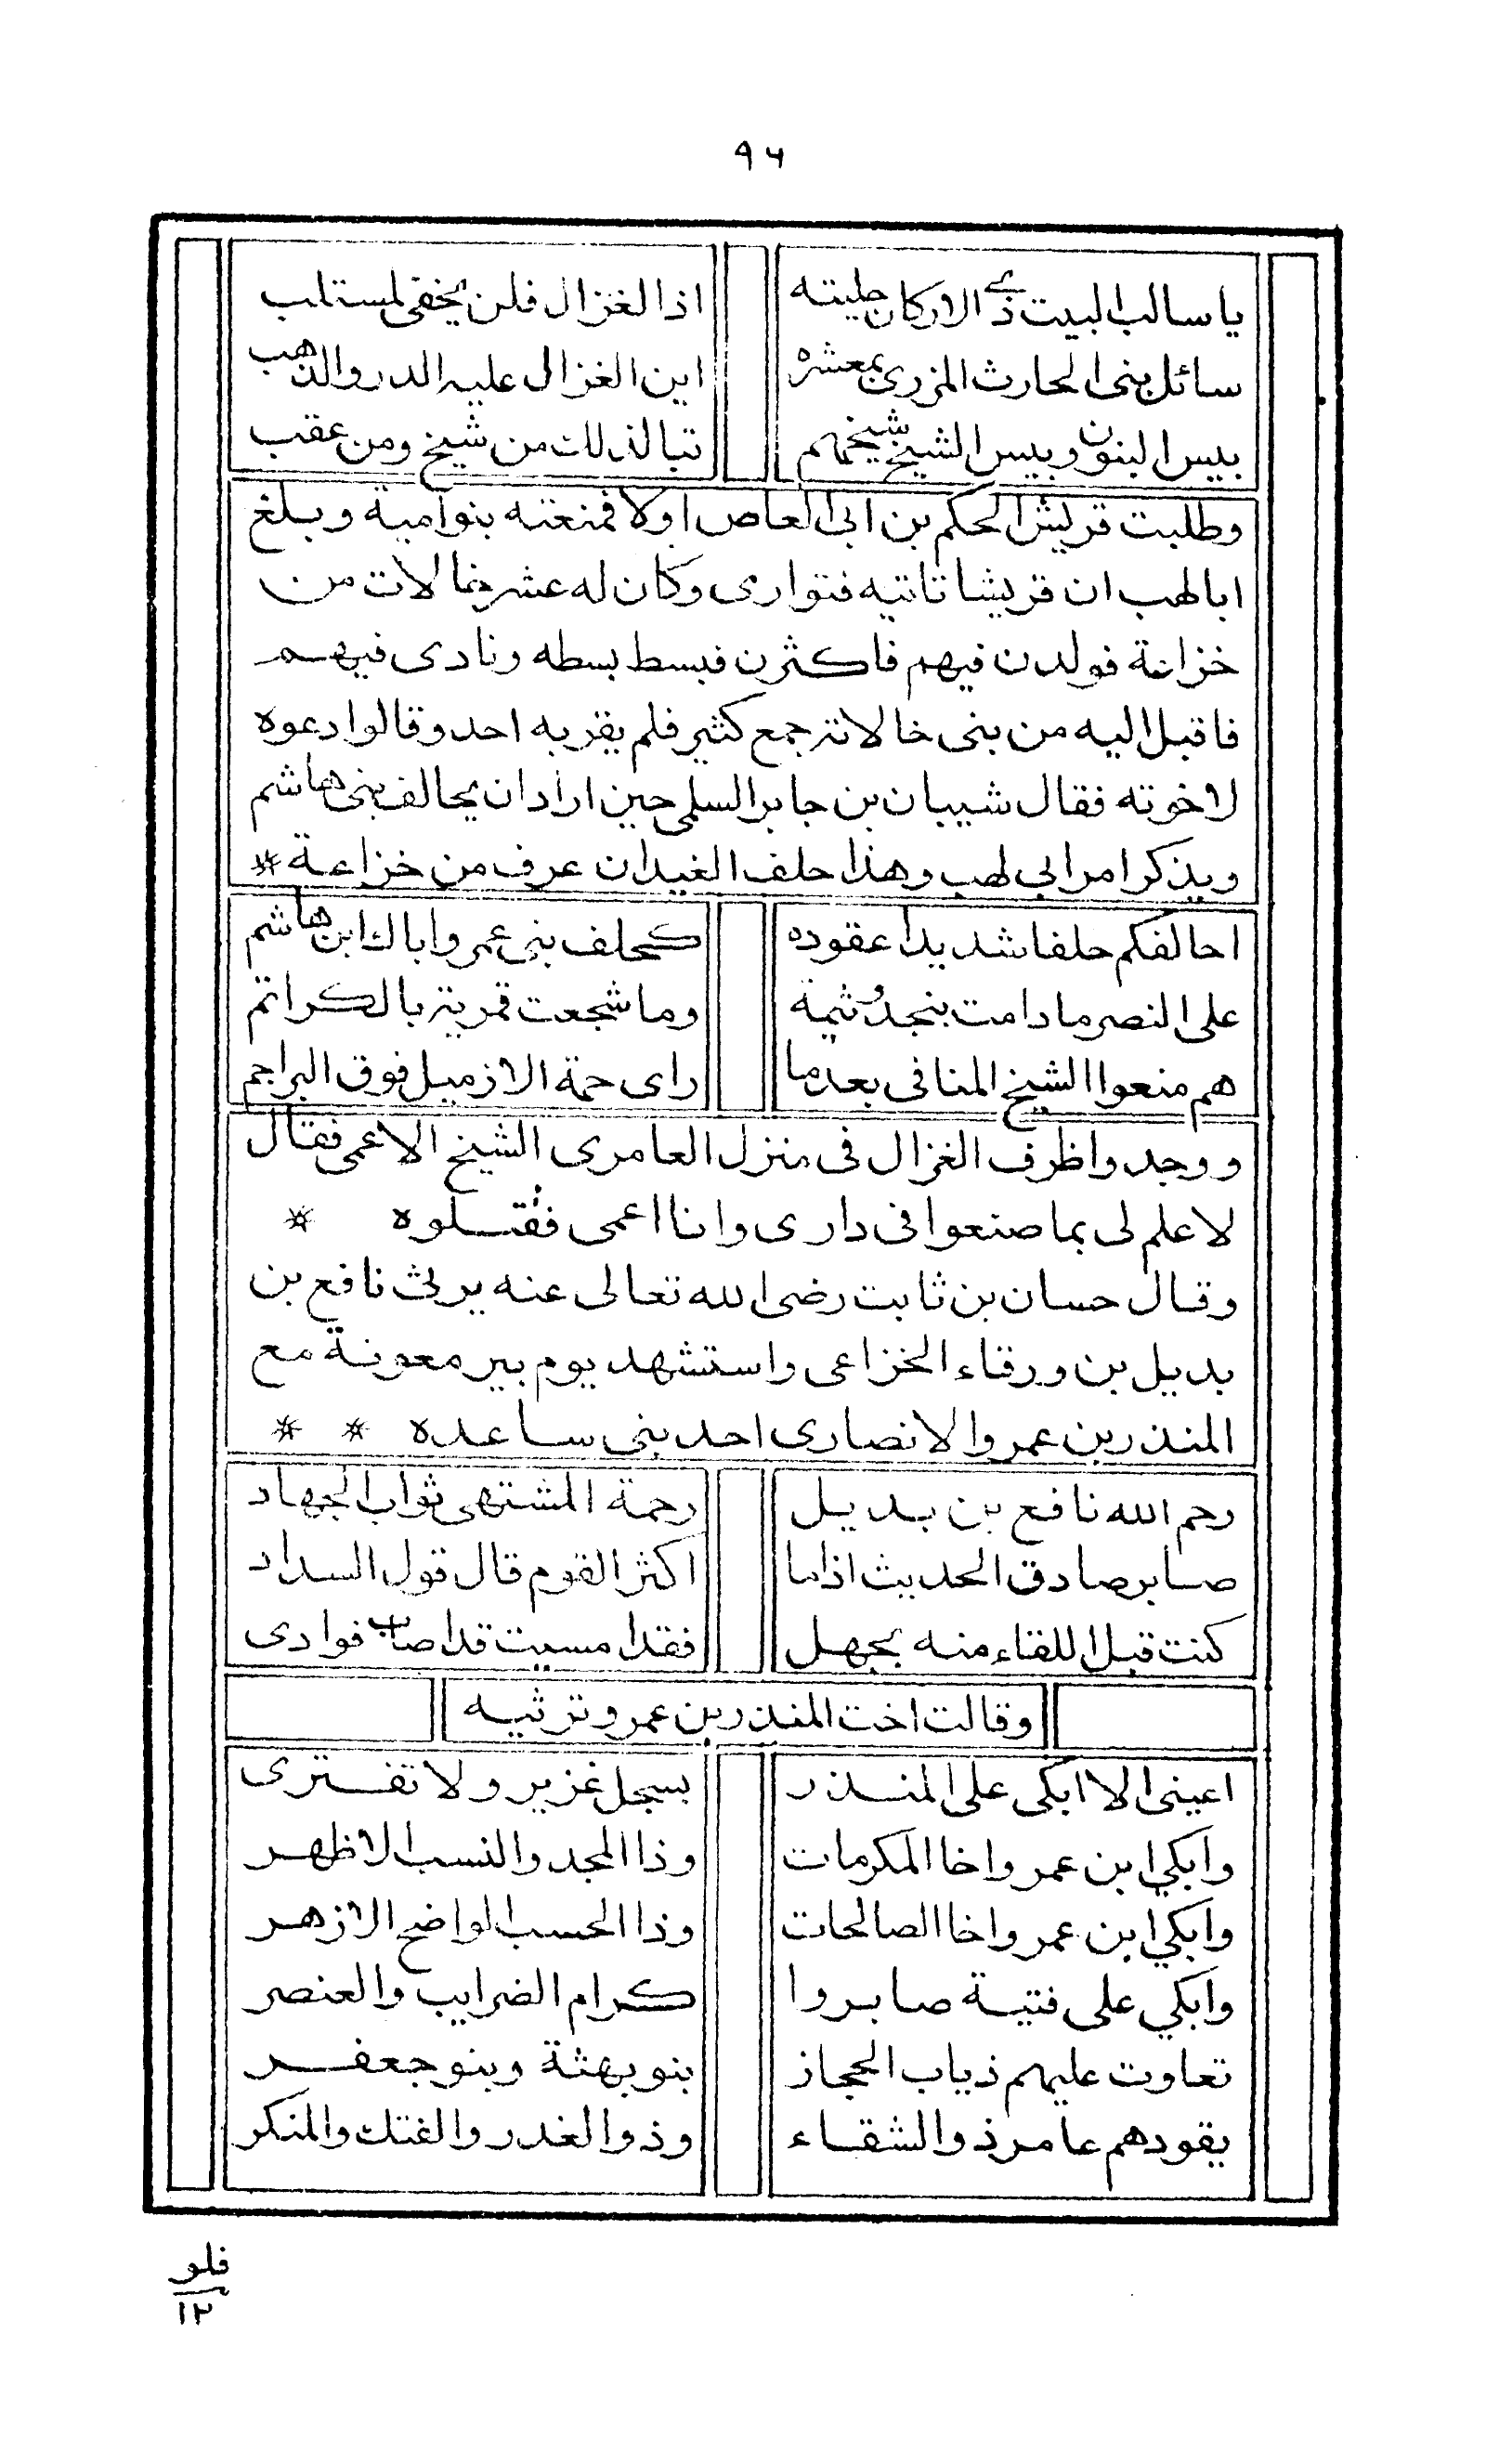 ٩٦
ياسالب البيت ذى الاركان حليته اذا الغزال فلن يخفى لمستلب
سائل بنى الحارث المزرى بمعشره اين الغزال عليه الدر والذهب
بيس البنون وبيس الشيخ شيخهم تبا لذلك من شيخ ومن عقب
وطلبت قريش الحكم بن ابى العاص اولا فمنعته بنوامية وبلغ
ابا لهب ان قريشا تاتيه فتوارى وكان له عشر خالات من
خزاعة فولدن فيهم فاكثرن فبسط بسطه ونادى فيهم
فاقبل اليه من بنى خالاته جمع كثير فلم يقربه احد وقالوا دعوه
لاخوته فقال شيبان بن جابر السلمى حين اراد ان يحالف بنى هاشم
ويذكر امر ابى لهب وهذا حلف الغيدان عرف من خزاعة *
احالفكم حلفا شديدا عقوده كحلف بنى عمرو اباك ابن هاشم
على النصر ما دامت بنجد وثيمة وما شجعت قمرية بالكراتم
هم منعوا الشيخ المنافى بعدما راى حمة الازميل فوق البراجم
ووجدوا ظرف الغزال فى منزل العامرى الشيخ الاعمى فقال
لا علم لى بما صنعوا فى دارى وانا اعمى فقتلوه *
وقال حسان بن ثابت رضى الله تعالى عنه يرثى نافع بن
بديل بن ورقاء الخزاعى واستشهد يوم بير معونة مع
المنذر بن عمرو الانصارى احد بنى ساعده * *
رحم الله نافع بن بديل رحمة المشتهى ثواب الجهاد
صابر صادق الحديث اذا ما اكثر القوم قال قول السداد
كنت قبل اللقاء منه بجهل فقد امسيت قد اصاب فوادى
وقالت اخت المنذر بن عمرو ترثيه
اعينى الا ابكى على المنذر بسجل غزير ولا تفترى
وابكي ابن عمرو اخا المكرمات وذا المجد والنسب الاظهر
وابكي ابن عمرو اخا الصالحات وذا الحسب الواضح الازهر
وابكي على فتية صابروا كرام الضرايب والعنصر
تعاوت عليهم ذياب الحجاز بنو بهثة وبنو جعفر
يقودهم عامر ذو الشقاء وذو الغدر والفتك والمنكر
فلو
١٢